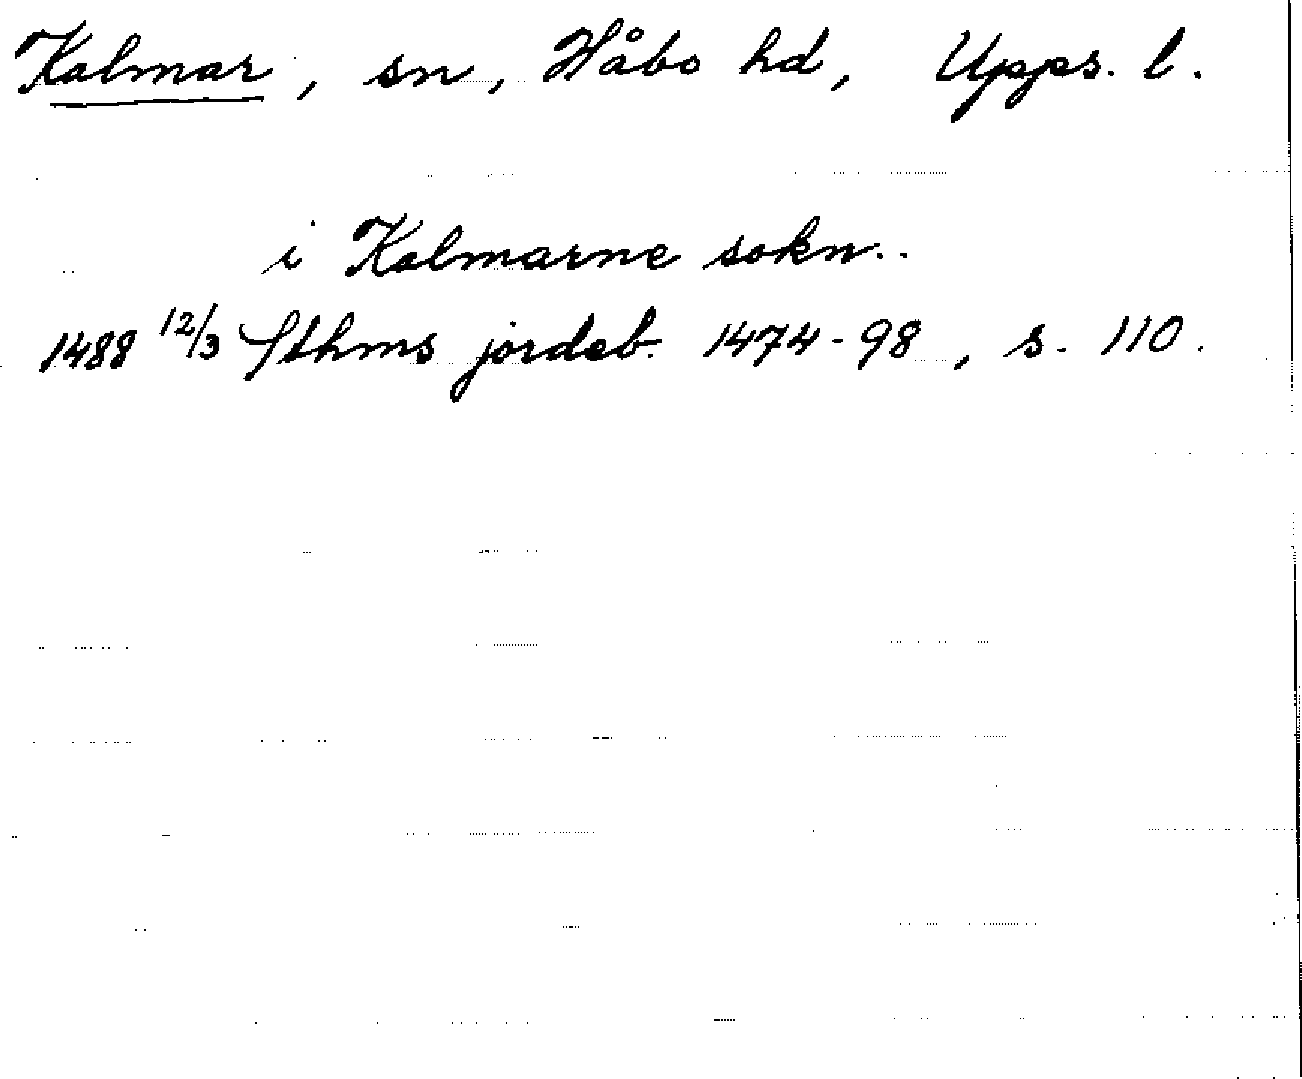 Kalmar, sn, Håbo hd, Upps. l.
i Kalmarne sokn..
1488 12/3 Sthms jordeb. 1474-98, s. 110.